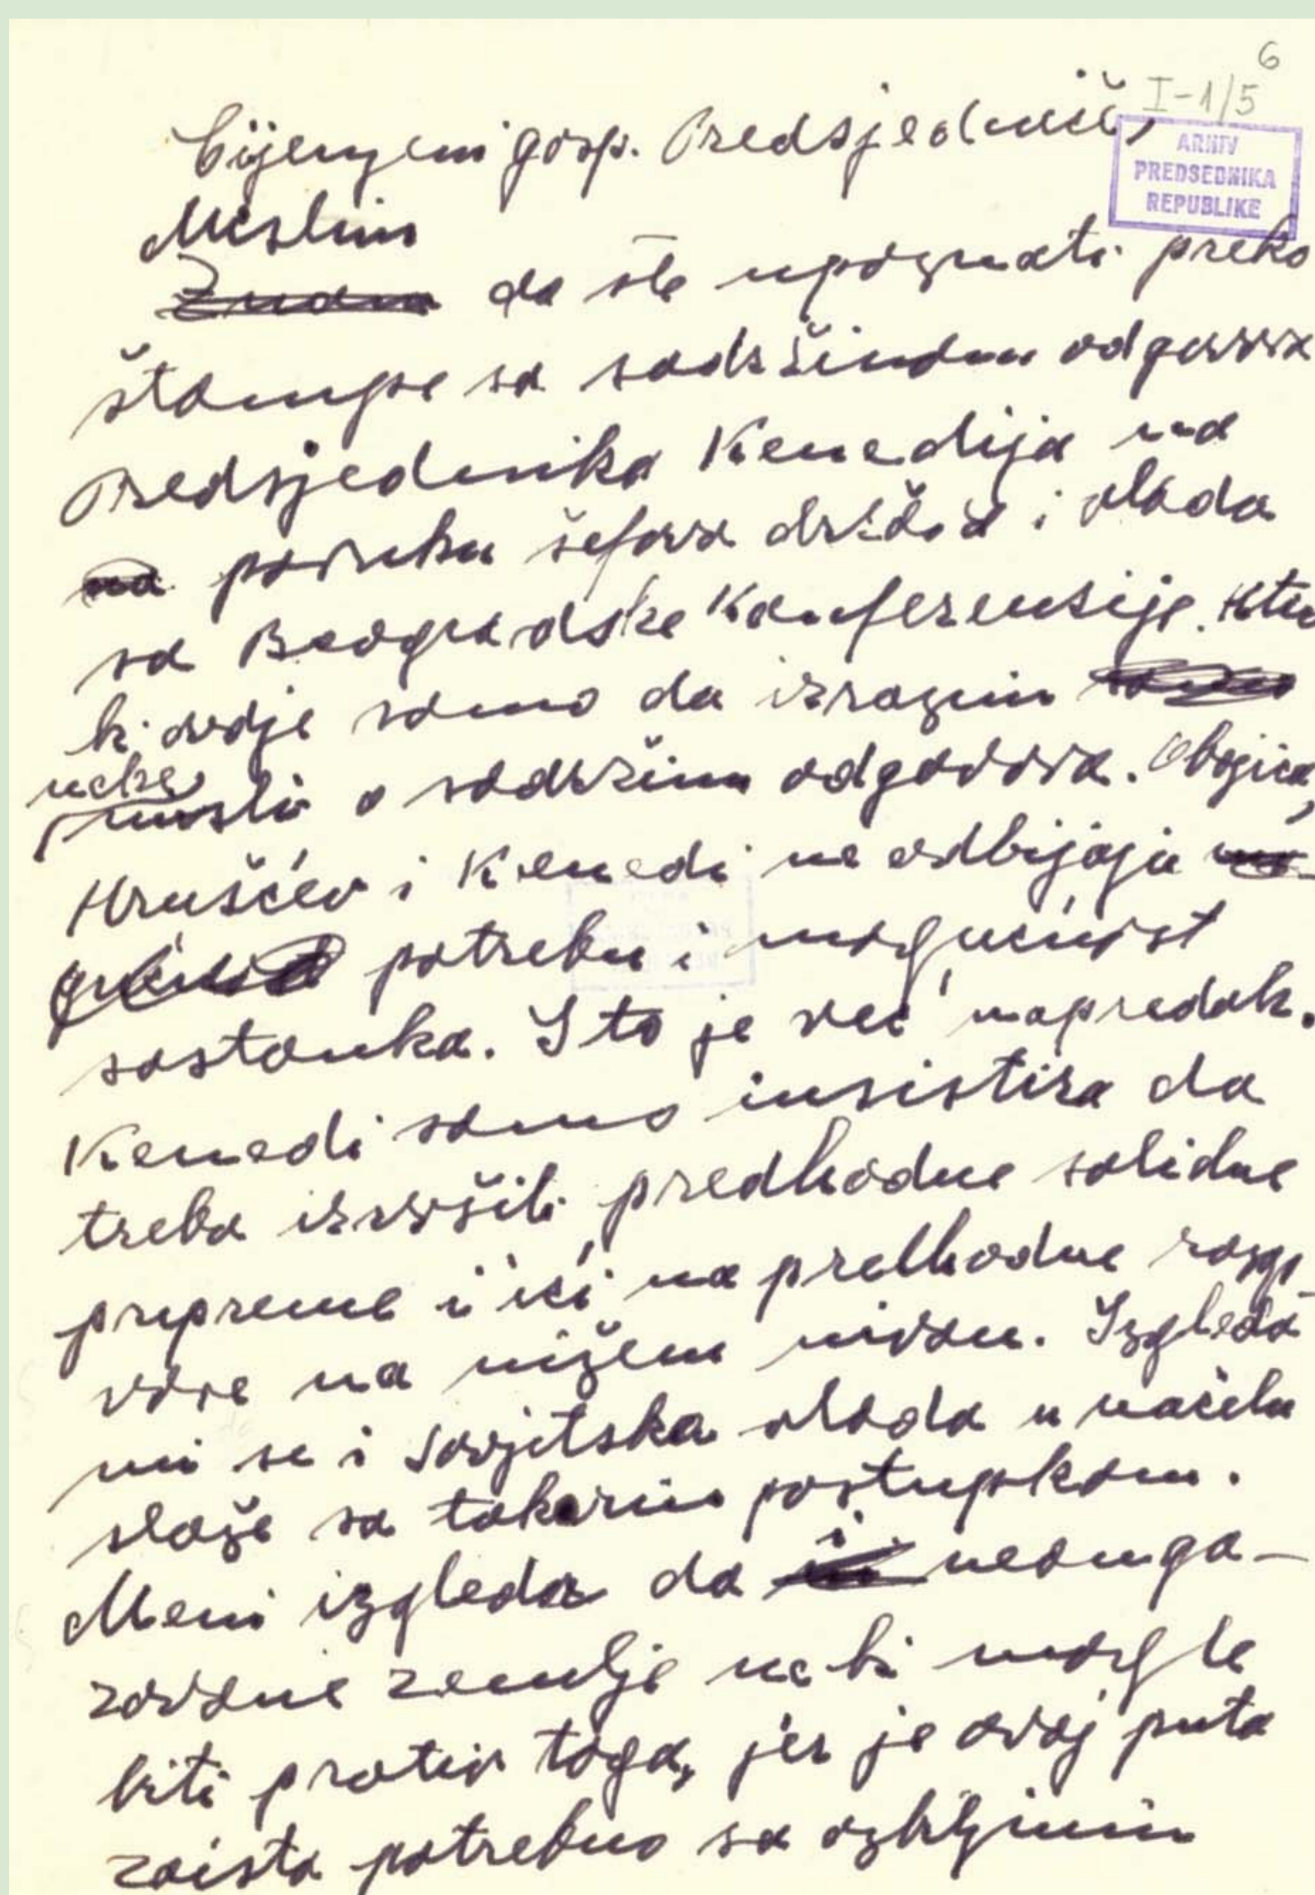 6
I-1/5
ARHIV
PREDSEDNIKA
REPUBLIKE
Cijenjeni gosp. Predsjedniče,
Mislim
Znam da ste upoznati preko
štampe sa sadržinom odgovora
Predsjednika Kenedija na
na poruku šefova država i vlada
sa Beogradske Konferensije. Htio
bi ovdje samo da izrazim
neke
misli o sadržinu odgovora. Obojica,
Hruščev i Kenedi ne odbijaju
potrebu i mogućnost
sastanka. I to je već napredak.
Kenedi samo insistira da
treba izvršiti predhodne solidne
pripreme i ići na predhodne razgo-
vore na nižem nivou. Izgleda
mi se i Sovjetska vlada u načelu
slaže sa takovim postupkom.
Meni izgleda da i neanga-
zovane zemlje ne bi mogle
biti protiv toga, jer je ovaj puta
zaista potrebno sa ozbiljnim